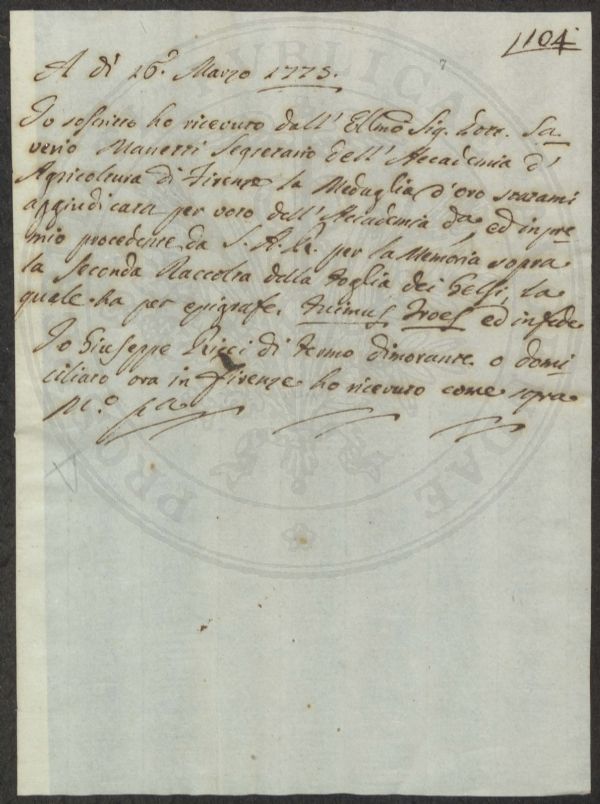 1104
A dì 16.º Marzo 1773.
Io soscritto ho ricevuto dall' Ec̃mo Sig. Dott. Sa-
verio Manetti Segretario dell' Accademia d'
Agricoltura di Firenze la Medaglia d'oro statami
aggiudicata per voto dell' Accademia da, ed in pre-
mio procedente da S. A. R. per la Memoria sopra
la Seconda Raccolta della Foglia dei Gelsi, la
quale ha per epigrafe. ed in fede
Io Giuseppe Ricci di Fermo dimorante o domi
ciliato ora in Firenze ho ricevuto come sopra
PUBLICAE
PROS